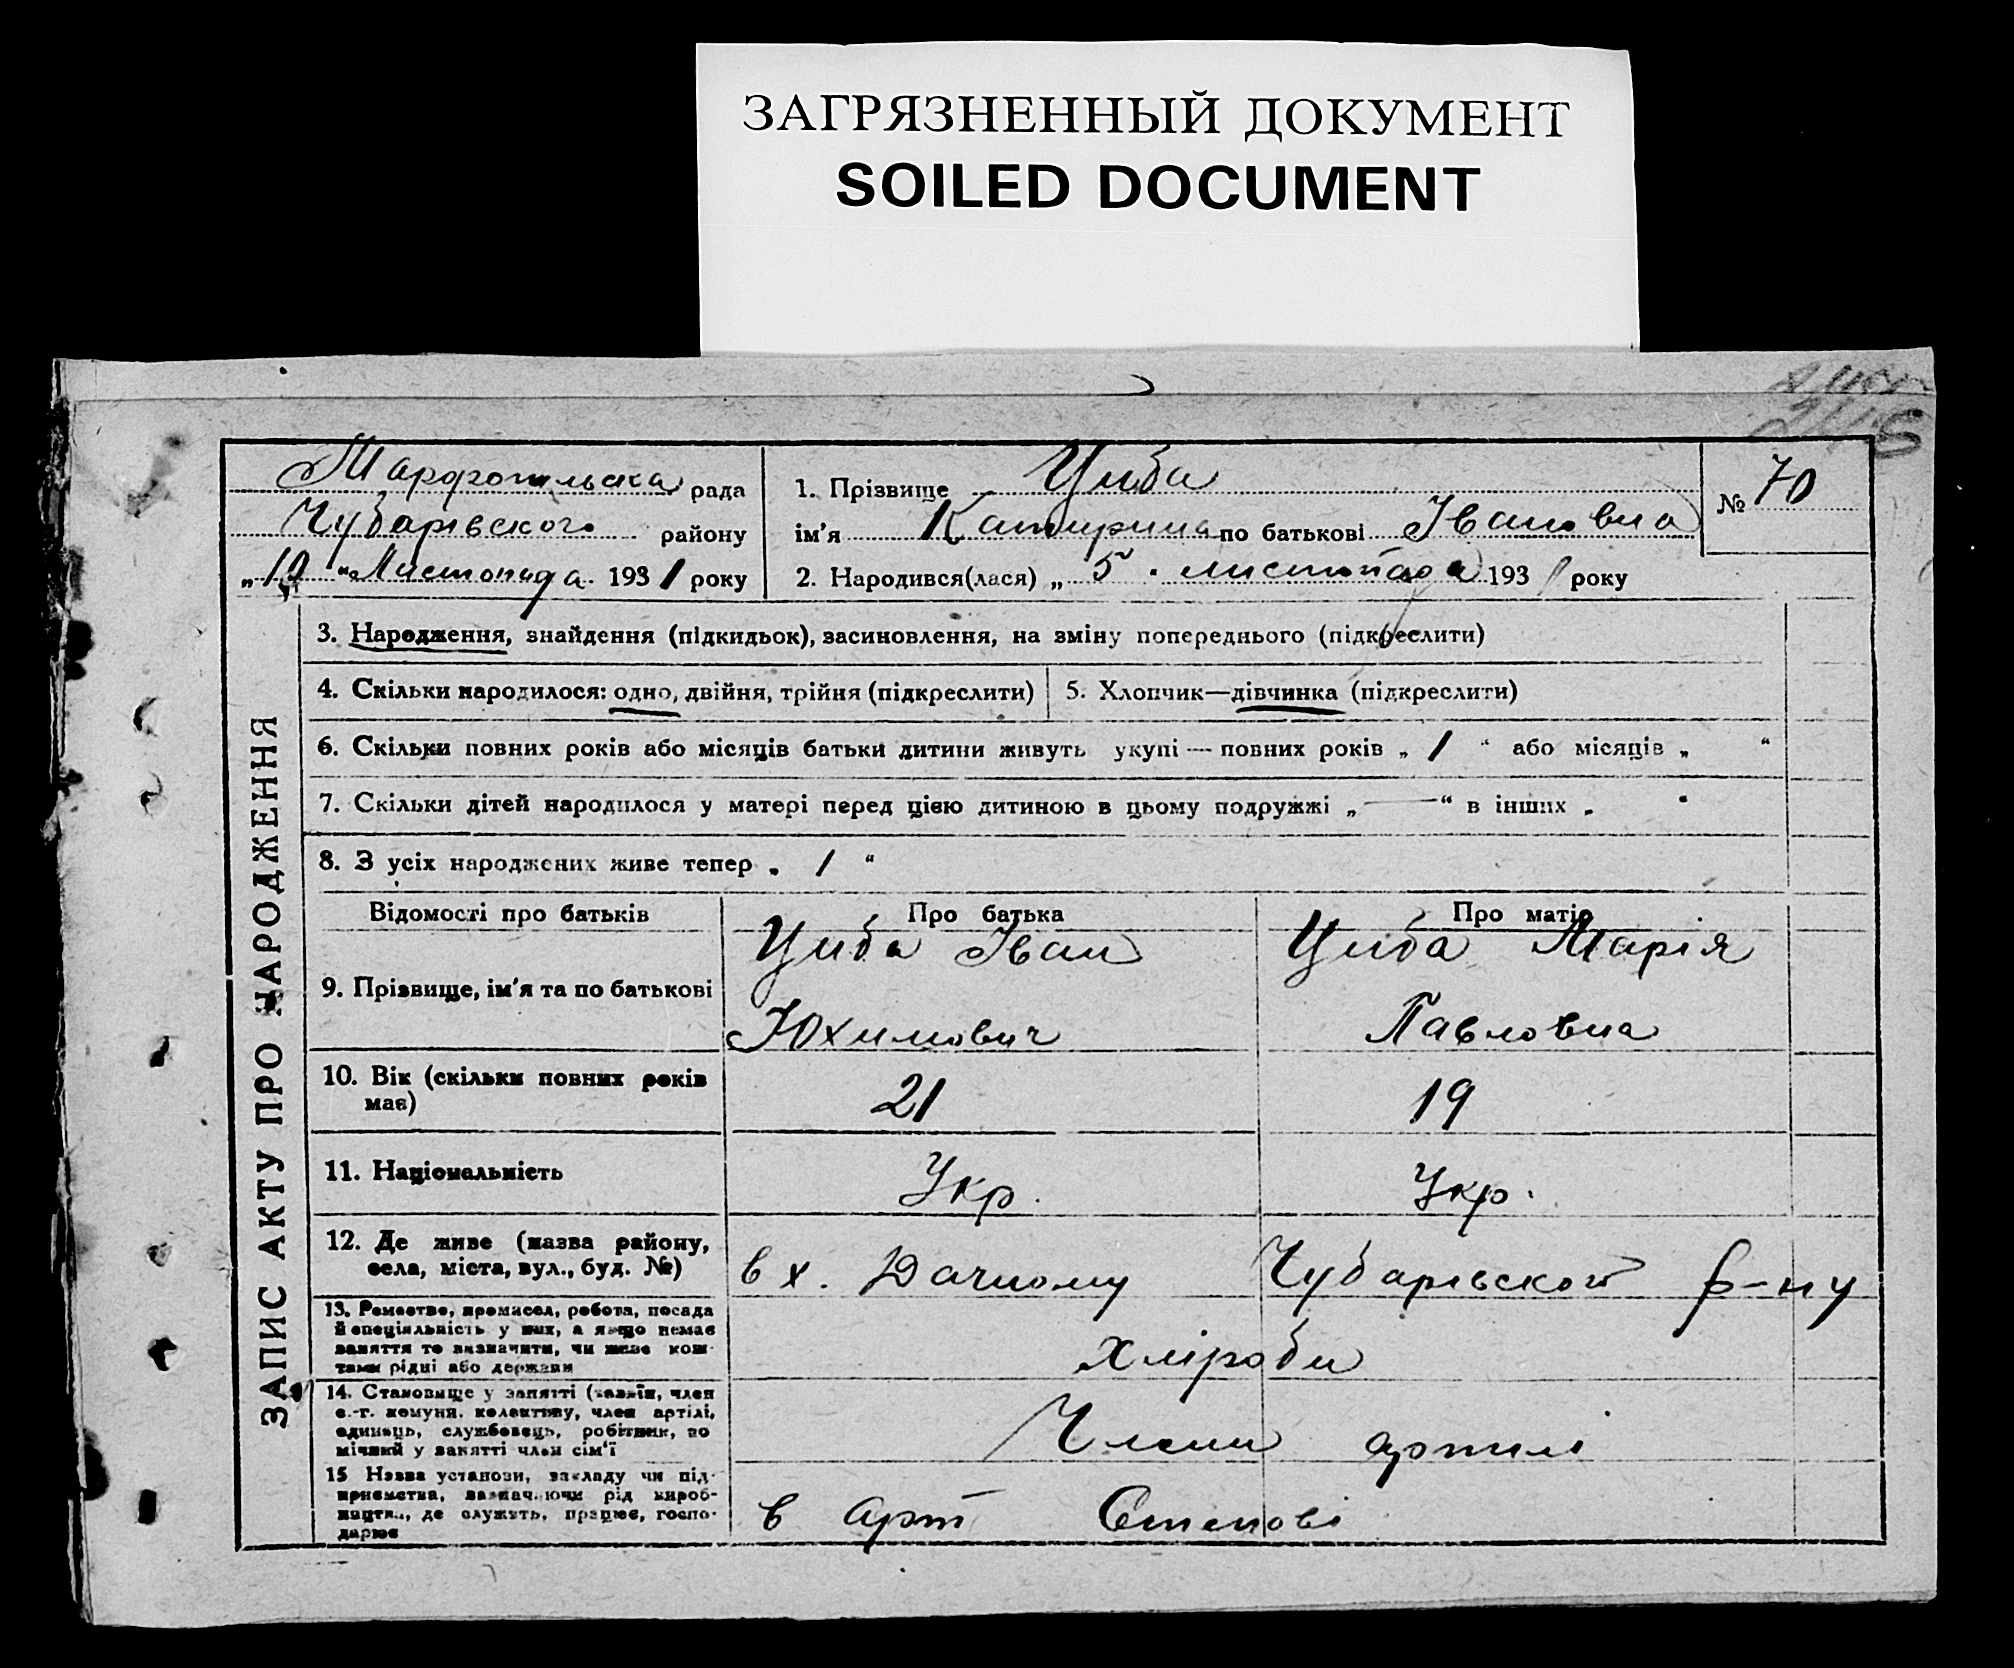 ЗАГРЯЗНЕННЫЙ ДОКУМЕНТ
SOILED DOCUMENT
ЗАПИС АКТУ ПРО НАРОДЖЕННЯ
Марфопильска рада
Чубарівского району
„10“ Листопада 1931 року
1. Прізвище Циба
ім'я Катирина по батькові Івановна
2. Народився(лася) „5 листопада 1931 року
№ 70
3. Народження, знайдення (підкидьок), засиновлення, на зміну попереднього (підкреслити)
4. Скільки народилося: одно, двійня, трійня (підкреслити)
5. Хлопчик—дівчинка (підкреслити)
6. Скільки повних років або місяців батьки дитини живуть укупі — повних років „ 1 “ або місяців „ “
7. Скільки дітей народилося у матері перед цією дитиною в цьому подружжі „ — “ в інших „ “
8. З усіх народжених живе тепер „ 1 “
Відомості про батьків
Про батька
Про матір
9. Прізвище, ім'я та по батькові
Циба Іван
Юхимович
Циба Марія
Павловна
10. Вік (скільки повних років
має)
21
19
11. Національність
Укр.
Укр.
12. Де живе (назва району,
села, міста, вул., буд. №)
в х. Дачному Чубарівског р-ну
13. Ремество, промисел, робота, посада
й спеціяльність у них, а якщо немає
заняття то визначити, чи живе кош-
тами рідні або держави
Хліроби
14. Становище у занятті (хазяїн, член
с.-г. комуни, колективу, член артілі,
одинець, службовець, робітник, по
мічний у занятті член сім'ї
Члени артилі
15 Назва установи, закладу чи під-
приємства, зазначаючи рід вироб-
ництва, де служить, працює, госпо-
дарює
в арт Степові